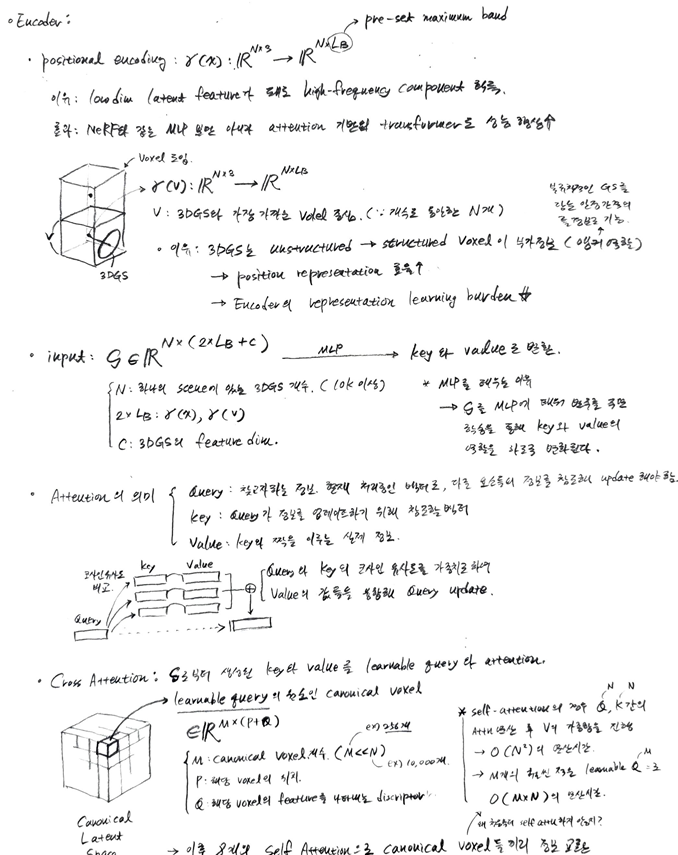 ◦ Encoder:
pre-set maximum band
• positional encoding : γ(x) : ℝ^{N×3} → ℝ^{N×L_B}
이유: low dim latent feature가 high-frequency component 학습.
효과: NeRF와 같은 MLP 뿐만 아니라 attention 기반의 transformer도 성능 향상↑
Voxel 도입.
→ γ(V) : ℝ^{N×3} → ℝ^{N×L_B}
V : 3DGS와 가장 가까운 Voxel 중심. (∵ 개수도 동일한 N개)
3DGS
• 이유: 3DGS는 unstructured → structured Voxel이 부가정보 (앵커 역할)
→ position representation 효율↑
→ Encoder의 representation learning burden ↓
◦ input: G ∈ ℝ^{N×(2×L_B+C)} MLP → key와 value로 변환.
N: 하나의 scene에 있는 3DGS 개수. (10k 이상)
2×L_B : γ(x), γ(V)
C: 3DGS의 feature dim.
* MLP를 태우는 이유
→ G를 MLP에 태워 변화를 주면
학습을 통해 key와 value의
역할을 하도록 변화된다.
◦ Attention의 의미
Query : 찾고자하는 정보. 현재 처리중인 벡터로, 다른 요소들의 정보를 참고해 update 해야함.
key : Query가 정보를 업데이트하기 위해 참고하는 벡터
Value: key와 짝을 이루는 실제 정보.
코사인유사도
비교.
key Value
Query
Query와 key의 코사인 유사도를 가중치로 하여
Value의 값들을 통합해 Query update.
• Cross Attention: G로부터 생성된 key와 value를 learnable query와 attention.
→ learnable query의 원소인 canonical voxel
∈ ℝ^{M×(P+Q)}
M: canonical voxel 개수. (M<<N)
ex) 256개
ex) 10,000개.
P: 해당 voxel의 위치.
Q: 해당 voxel의 feature를 나타내는 discriptor
* self-attention의 경우 Q^N, K^N간의
Attn 연산 후 V의 가중합을 진행
→ O(N²)의 연산시간.
→ M개의 learnable Q^M로
O(M×N)의 연산시간.
self attn 하지 않을까?
Canonical
Latent
Space
→ 이후 8개의 self Attention으로 canonical voxel들끼리 정보 교환